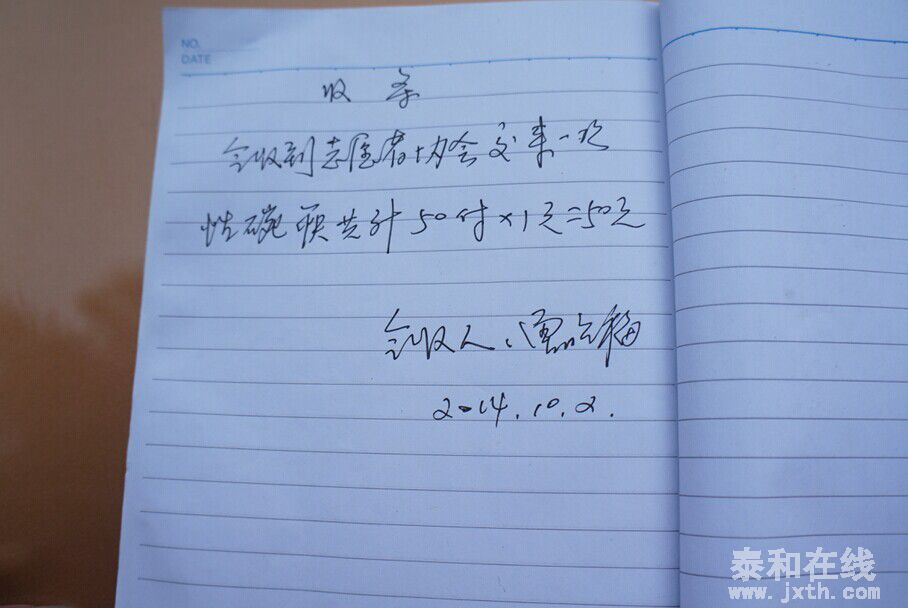 NO.
DATE
收条
今收到志愿者协会交来一次
性碗筷共计50付×1元=50元
今收人:
2014.10.2.
泰和在线
www.jxth.com